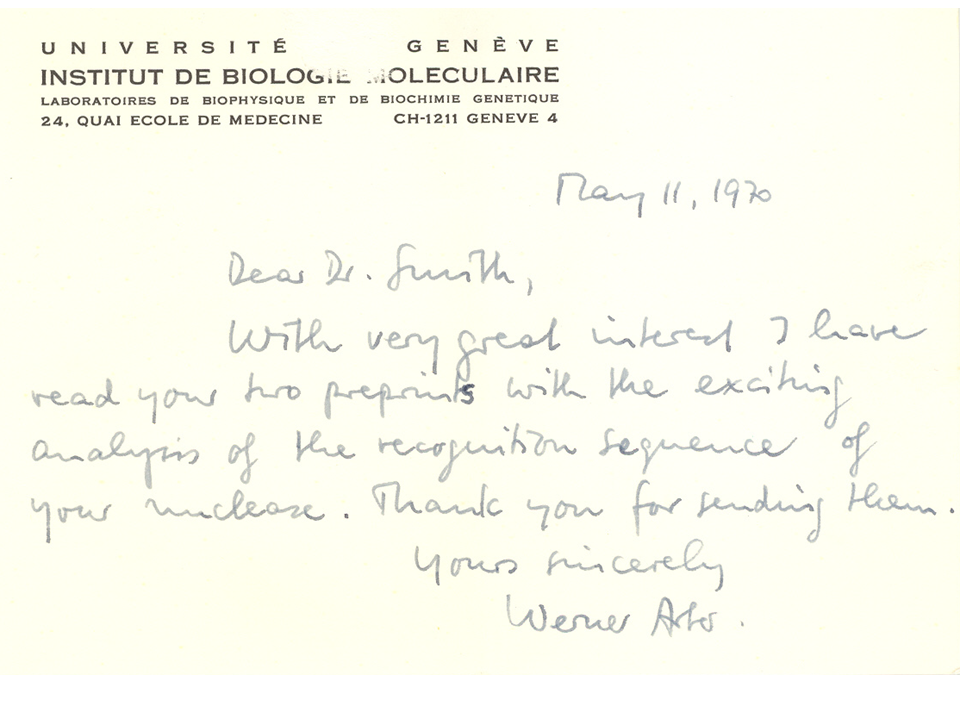 UNIVERSITÉ GENÈVE
INSTITUT DE BIOLOGIE MOLECULAIRE
LABORATOIRES DE BIOPHYSIQUE ET DE BIOCHIMIE GENETIQUE
24, QUAI ECOLE DE MEDECINE CH-1211 GENEVE 4
May 11, 1970
Dear Dr. Smith,
With very great interest I have
read your two preprints with the exciting
analysis of the recognition sequence of
your nuclease. Thank you for sending them.
Yours sincerely
Werner Arber.